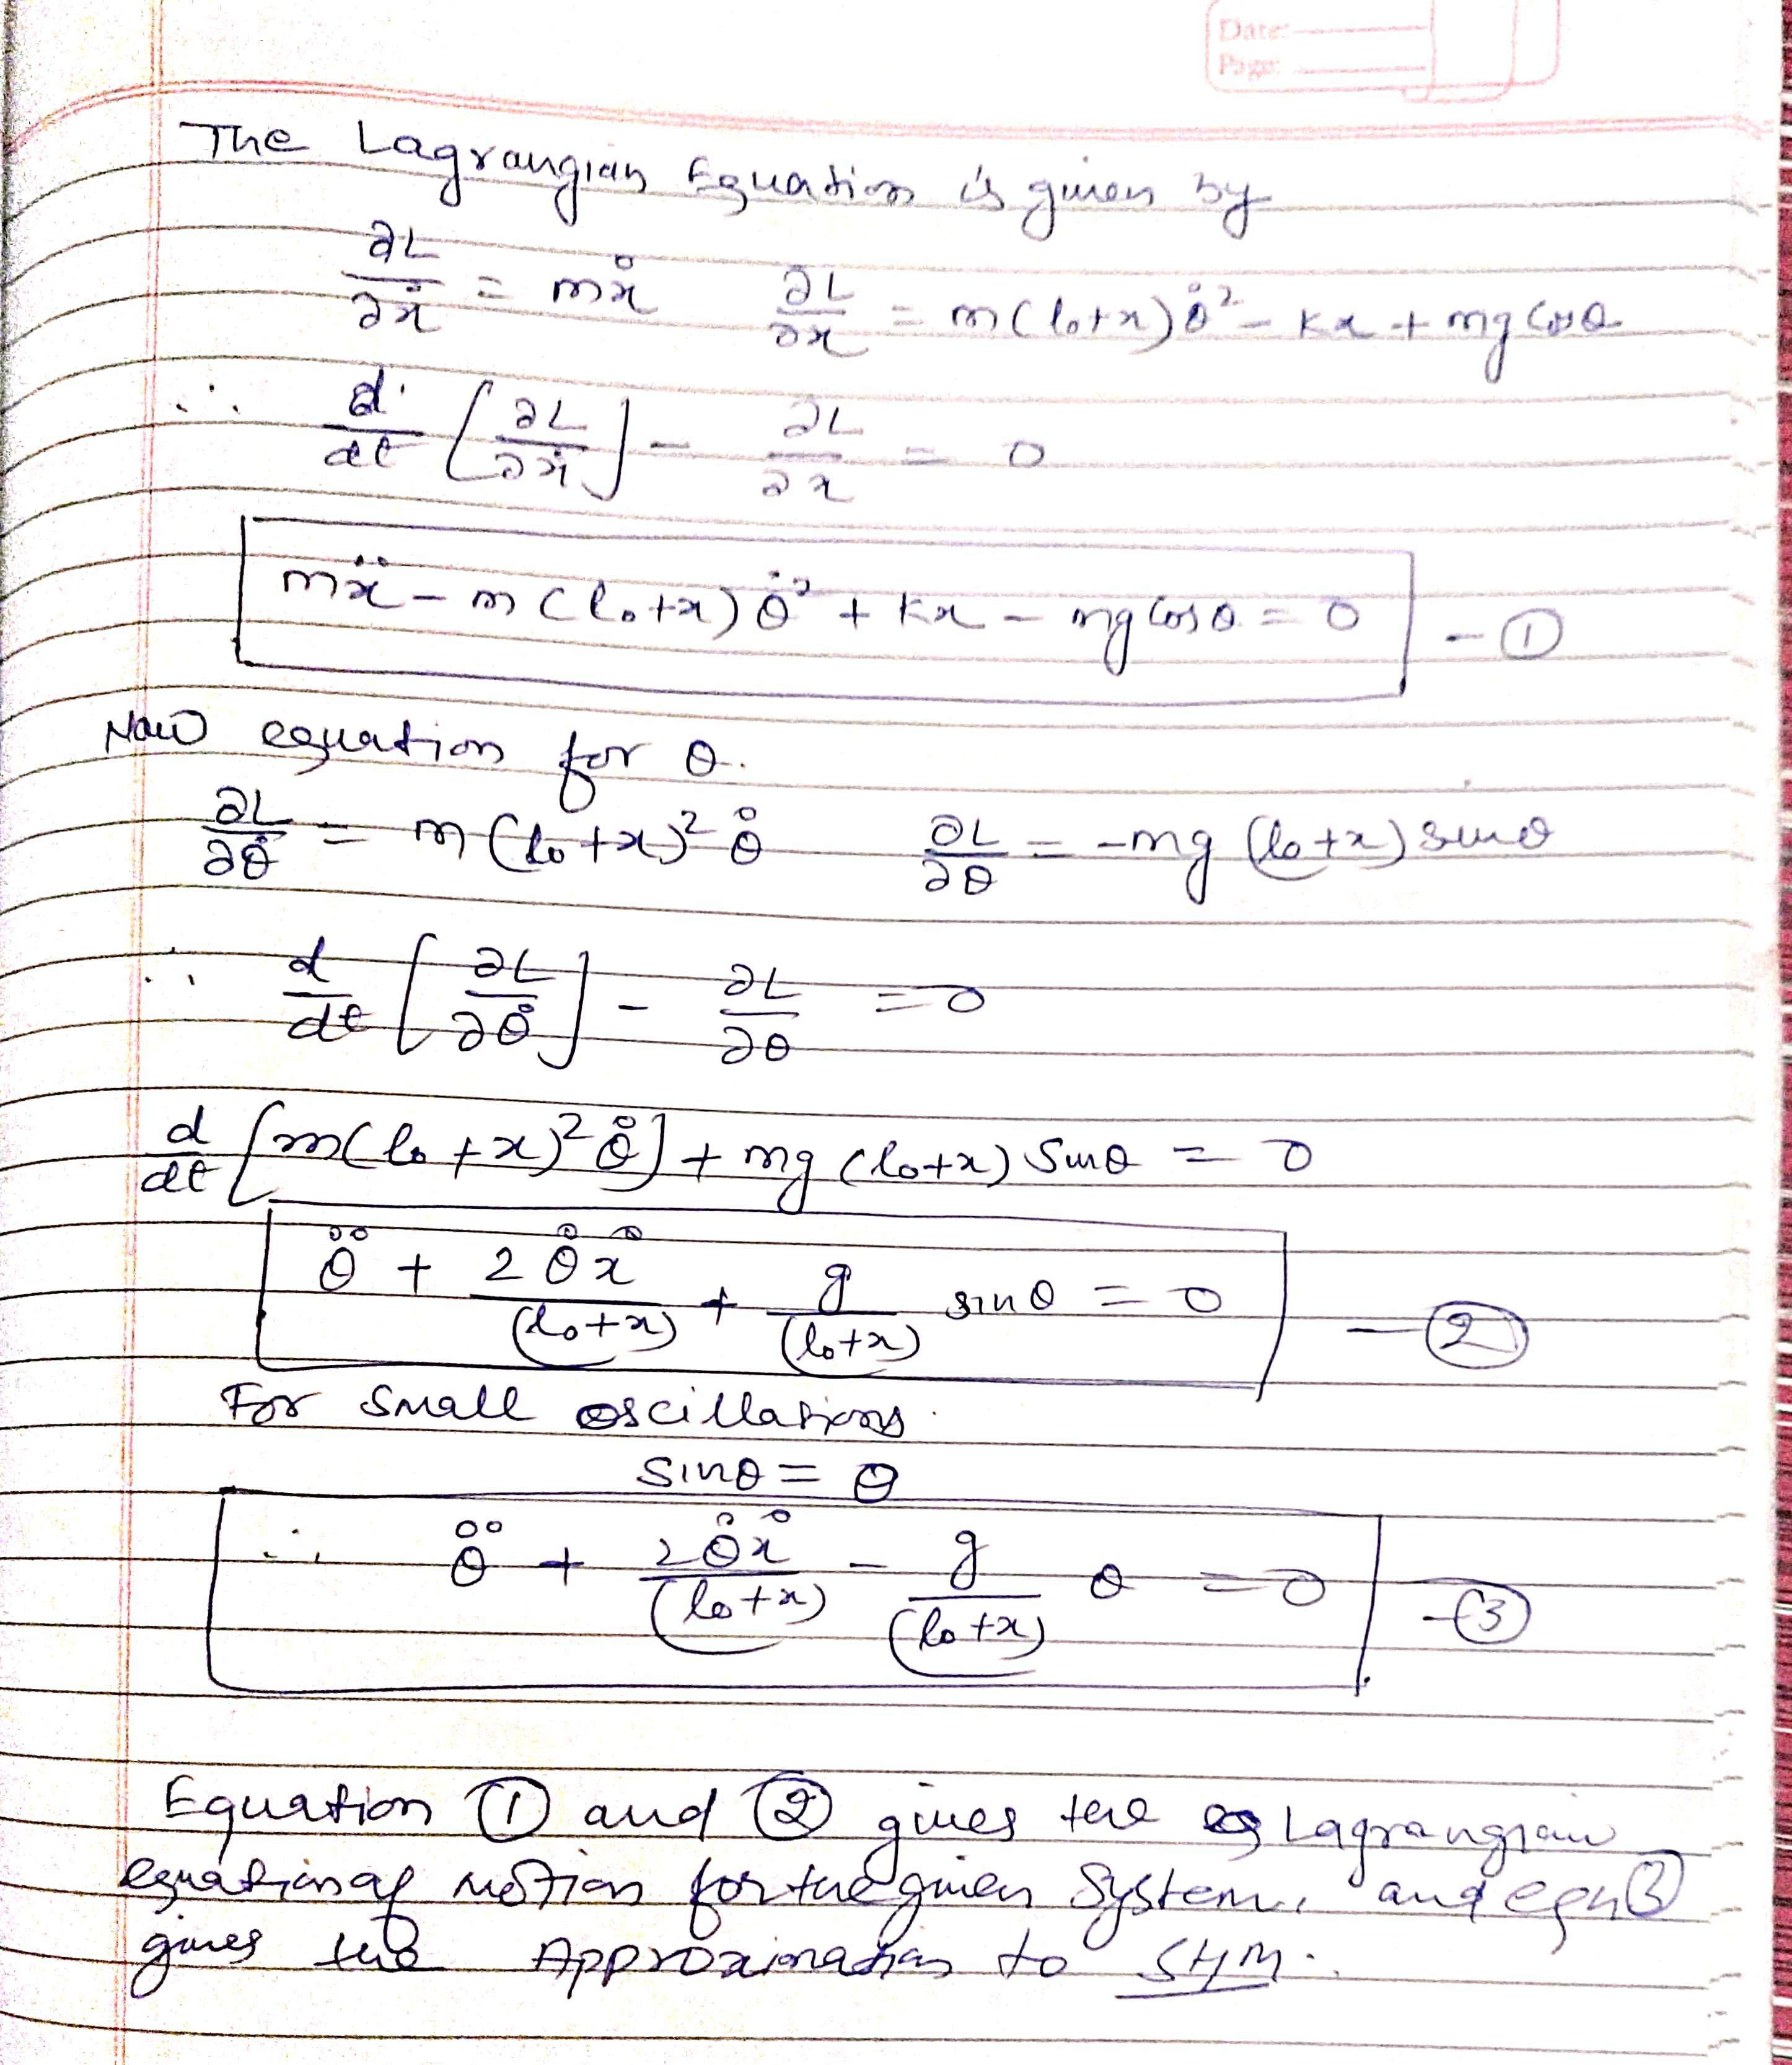 Date:
Page:
The Lagrangian Equation is given by
∂L/∂ẋ = mẋ   ∂L/∂x = m(l₀+x)θ̇² - kx + mg cosθ
∴ d/dt [∂L/∂ẋ] - ∂L/∂x = 0
mẍ - m(l₀+x)θ̇² + kx - mg cosθ = 0 - ①
Now equation for θ.
∂L/∂θ̇ = m(l₀+x)² θ̇   ∂L/∂θ = -mg (l₀+x) sinθ
∴ d/dt [∂L/∂θ̇] - ∂L/∂θ = 0
d/dt [m(l₀+x)² θ̇] + mg (l₀+x) sinθ = 0
θ̈ + 2θ̇ẋ/(l₀+x) + g/(l₀+x) sinθ = 0 - ②
For small oscillations.
sinθ = θ
∴ θ̈ + 2θ̇ẋ/(l₀+x) - g/(l₀+x) θ = 0 - ③
Equation ① and ② gives the Lagrangian
equation of motion for the given System. and eqn ③
gives the Approximation to SHM.